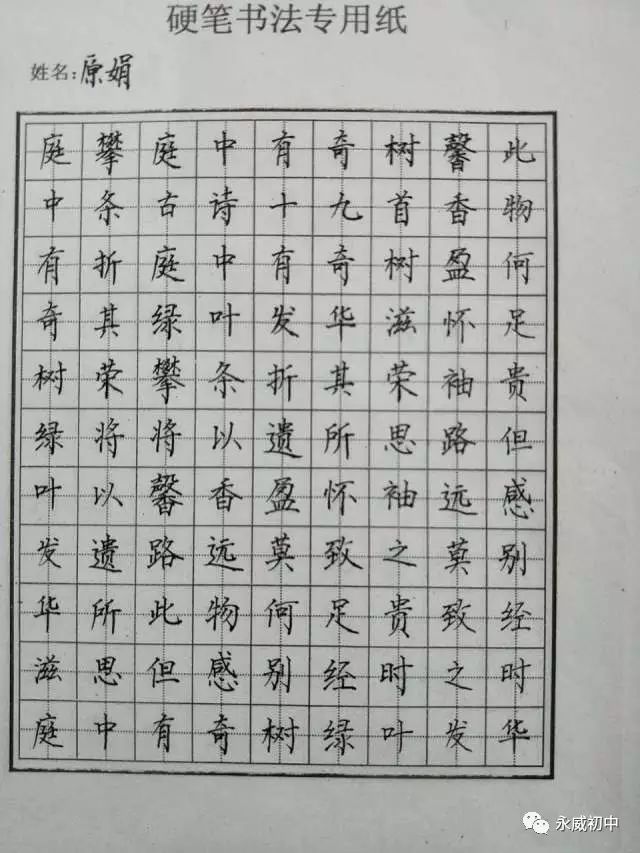 硬笔书法专用纸
姓名：原娟
庭攀庭中有奇树馨此
中条古诗十九首香物
有折庭中有奇树盈何
奇其绿叶发华滋怀足
树荣攀条折其荣袖贵
绿将将以遗所思路但
叶以馨香盈怀袖远感
发遗路远莫致之莫别
华所此物何足贵致经
滋思但感别经时之时
庭中有奇树绿叶发华
永威初中